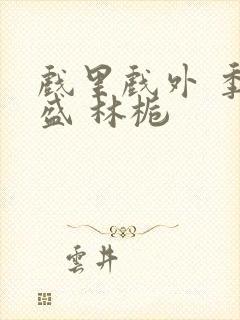 戲里戲外 季
盛 林栀
雲井